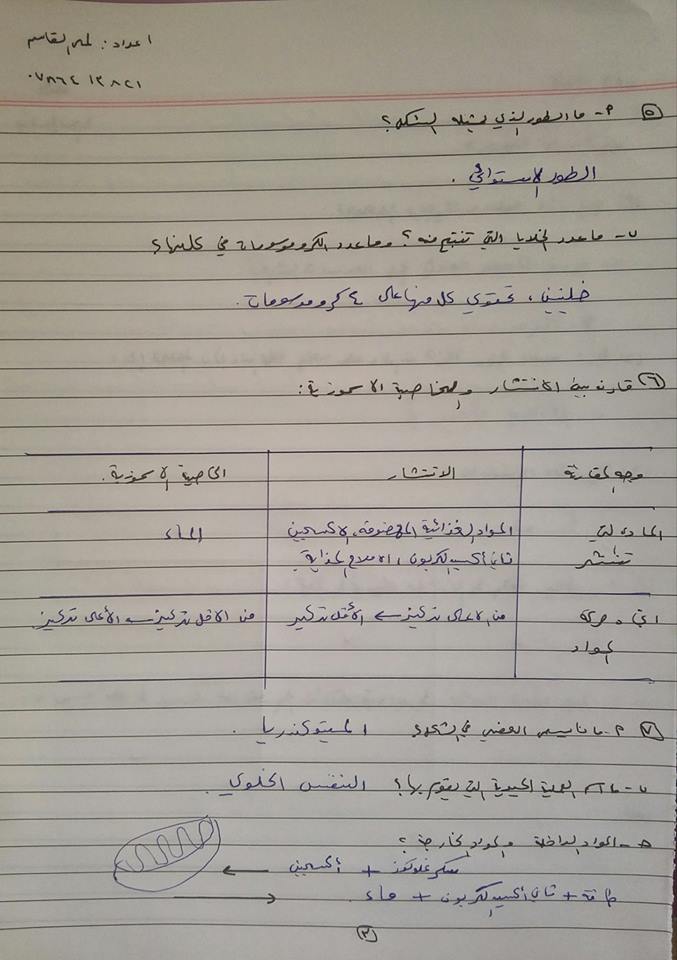 اعداد: لمى القاسم
٠٧٨٦٤١٣٨٢١
٥ أ- ما الطور الذي يمثله الشكل؟
الطور الاستوائي.
ب- ما عدد الخلايا التي تنتج منه؟ وما عدد الكروموسومات في كل منها؟
خليتين، تحتوي كل منها على ٤ كروموسومات.
٦ قارن بين الانتشار والخاصية الاسموزية:
وجه المقارنة الانتشار الخاصية الاسموزية.
المادة التي المواد الغذائية المهضومة، الاكسجين الماء
تنتشر ثاني أكسيد الكربون، الاملاح المذابة.
اتجاه حركة من الاعلى تركيز ← الأقل تركيز من الاقل تركيز ← الأعلى تركيز
المواد
٧ أ- ماذا يسمى العضي في الشكل؟ الميتوكندريا.
ب- ما العملية الحيوية التي يقوم بها؟ التنفس الخلوي.
ج- المواد الداخلة والمواد الخارجة؟
سكر غلوكوز + أكسجين ←
طاقة + ثاني أكسيد الكربون + ماء →
٣